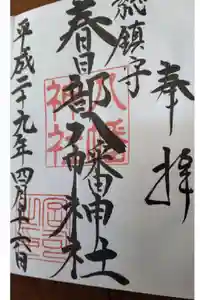 奉拝
総鎮守
春日部八幡神社
八幡
神社
平成二十九年四月十六日